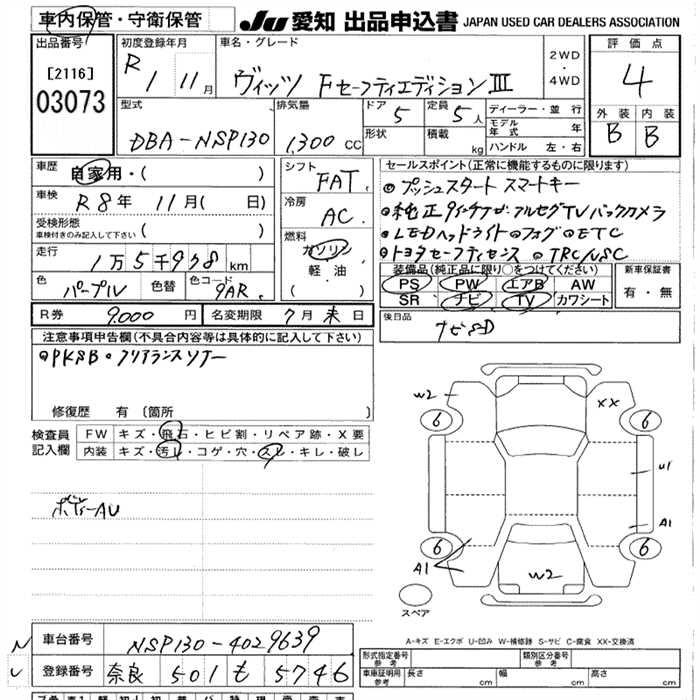 車内保管・守衛保管
JU 愛知 出品申込書 JAPAN USED CAR DEALERS ASSOCIATION
出品番号
[2116]
03073
初度登録年月
R 1 11月
車名・グレード
ヴィッツ FセーフティエディションⅢ
2WD
・
4WD
評価点
4
外装 内装
B B
型式
DBA-NSP130
排気量
1,300 CC
ドア
5
定員
5人
形状
積載
kg
ディーラー・並行
モデル年式 年
ハンドル 左・右
車歴
自家用・( )
車検
R8年 11月( 日)
受検形態
車検付きのみ記入して下さい ( )
走行
1万5千978km
色
パープル
色替
色コード
9AR
シフト
FAT
冷房
AC
燃料
ガソリン
軽油
( )
セールスポイント(正常に機能するものに限ります)
◎プッシュスタート スマートキー
◎純正9インチナビフルセグTVバックカメラ
◎LEDヘッドライト◎フォグ◎ETC
◎トヨタセーフティセンス ◎TRC/VSC
装備品(純正品に限り○をつけてください)
PS PW エアB AW
SR ナビ TV カワシート
新車保証書
有・無
R券 9,000円
名変期限 7月末日
後日品
ナビSD
注意事項申告欄(不具合内容等は具体的に記入して下さい)
◎PKSB◎クリアランスソナー
修復歴 有〔箇所 〕
検査員
記入欄
FW キズ・飛石・ヒビ割・リペア跡・X要
内装 キズ・汚れ・コゲ・穴・スレ・キレ・破レ
ボディーAU
W2
XX
6
6
U1
A1
6
6
A1
W2
スペア
A-キズ E-エクボ U-凹み W-補修跡 S-サビ C-腐食 XX-交換済
車台番号
NSP130-4029639
登録番号
奈良 501 も 5746
型式指定番号
参考
類別区分番号
参考
車庫証明用
参考
長さ cm
幅 cm
高さ cm